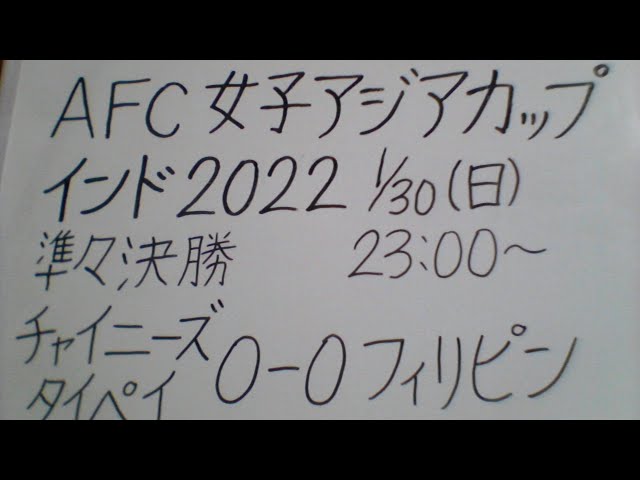 AFC女子アジアカップ
インド2022 1/30(日)
準々決勝 23:00〜
チャイニーズ
タイペイ 0-0 フィリピン